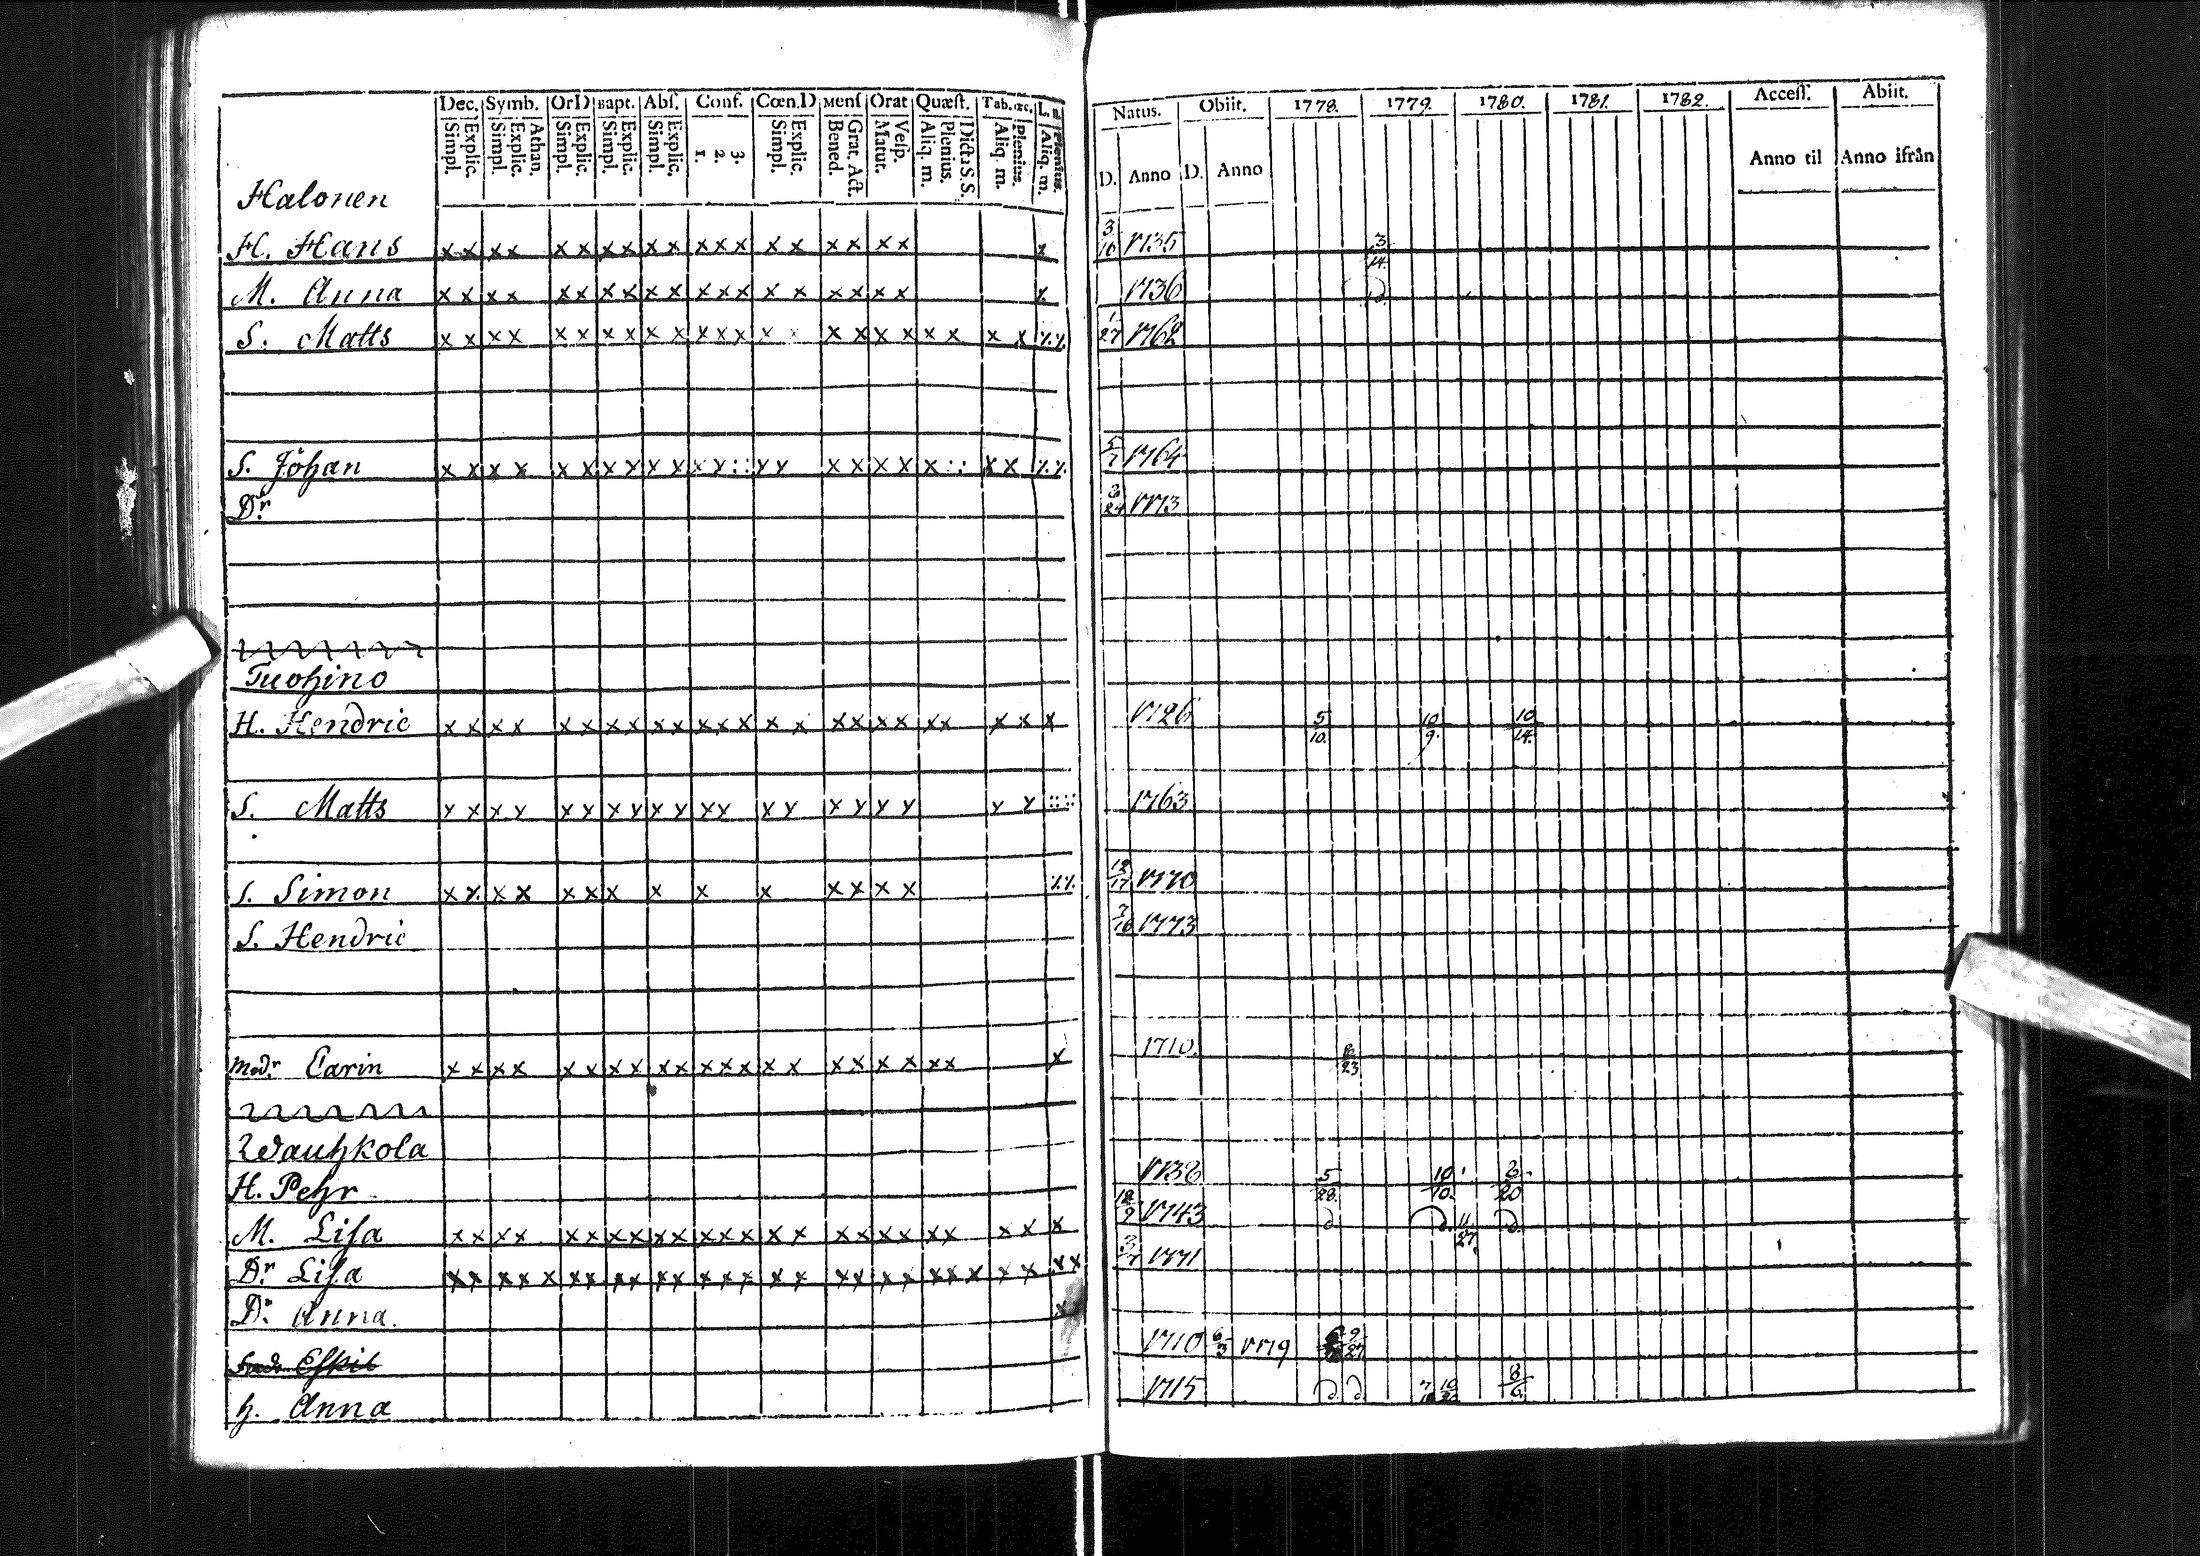 Dec. Symb. OrD Bapt. Abſ. Conf. Cœn.D Menſ Orat Quæſt. Tab.œc. L.
Simpl. Explic. Simpl. Explic. Athan. Simpl. Explic. Simpl. Explic. Simpl. Explic. 1. 2. 3. Simpl. Explic. Bened. Grat. Act. Matut. Veſp. Aliq. m. Plenius. Dicta S.S. Aliq. m. Plenius. Aliq. m. Plenius.
Halonen
H. Hans x x x x x x x x x x x x x x x x x x x x
M. Anna x x x x x x x x x x x x x x x x x x x x
S. Matts x x x x x x x x x x x x x x x x x x x x x x x x x
S. Johan x x x x x x x x x x x x :: x x x x x x x :: x x x x
Dr.
Tuohino
H. Hendric x x x x x x x x x x x x x x x x x x x x x x x x
S. Matts x x x x x x x x x x x x x x x x x x x x :: ::
S. Simon x x x x x x x x x x x x x x x x
S. Hendric
Modr. Carin x x x x x x x x x x x x x x x x x x x x x x
Wauhkola
H. Pehr
M. Lisa x x x x x x x x x x x x x x x x x x x x x x x x
Dr. Lisa x x x x x x x x x x x x x x x x x x x x x x x x x x x
Dr. Anna. x
Eskil
h. Anna
Natus. Obiit. 1778. 1779. 1780. 1781. 1782. Acceſſ. Abiit.
D. Anno D. Anno Anno til Anno ifrån
3/16 1735 3/14.
1736
1/27 1762
5/7 1764
3/24 1773
1726 5/10. 10/9. 10/14.
1763
12/17 1770
7/16 1773
1710.
1738 5/28. 10/10. 2/20
12/9 1743 11/27.
3/7 1771
1710 6/3 1779 9/27
1715 8/6